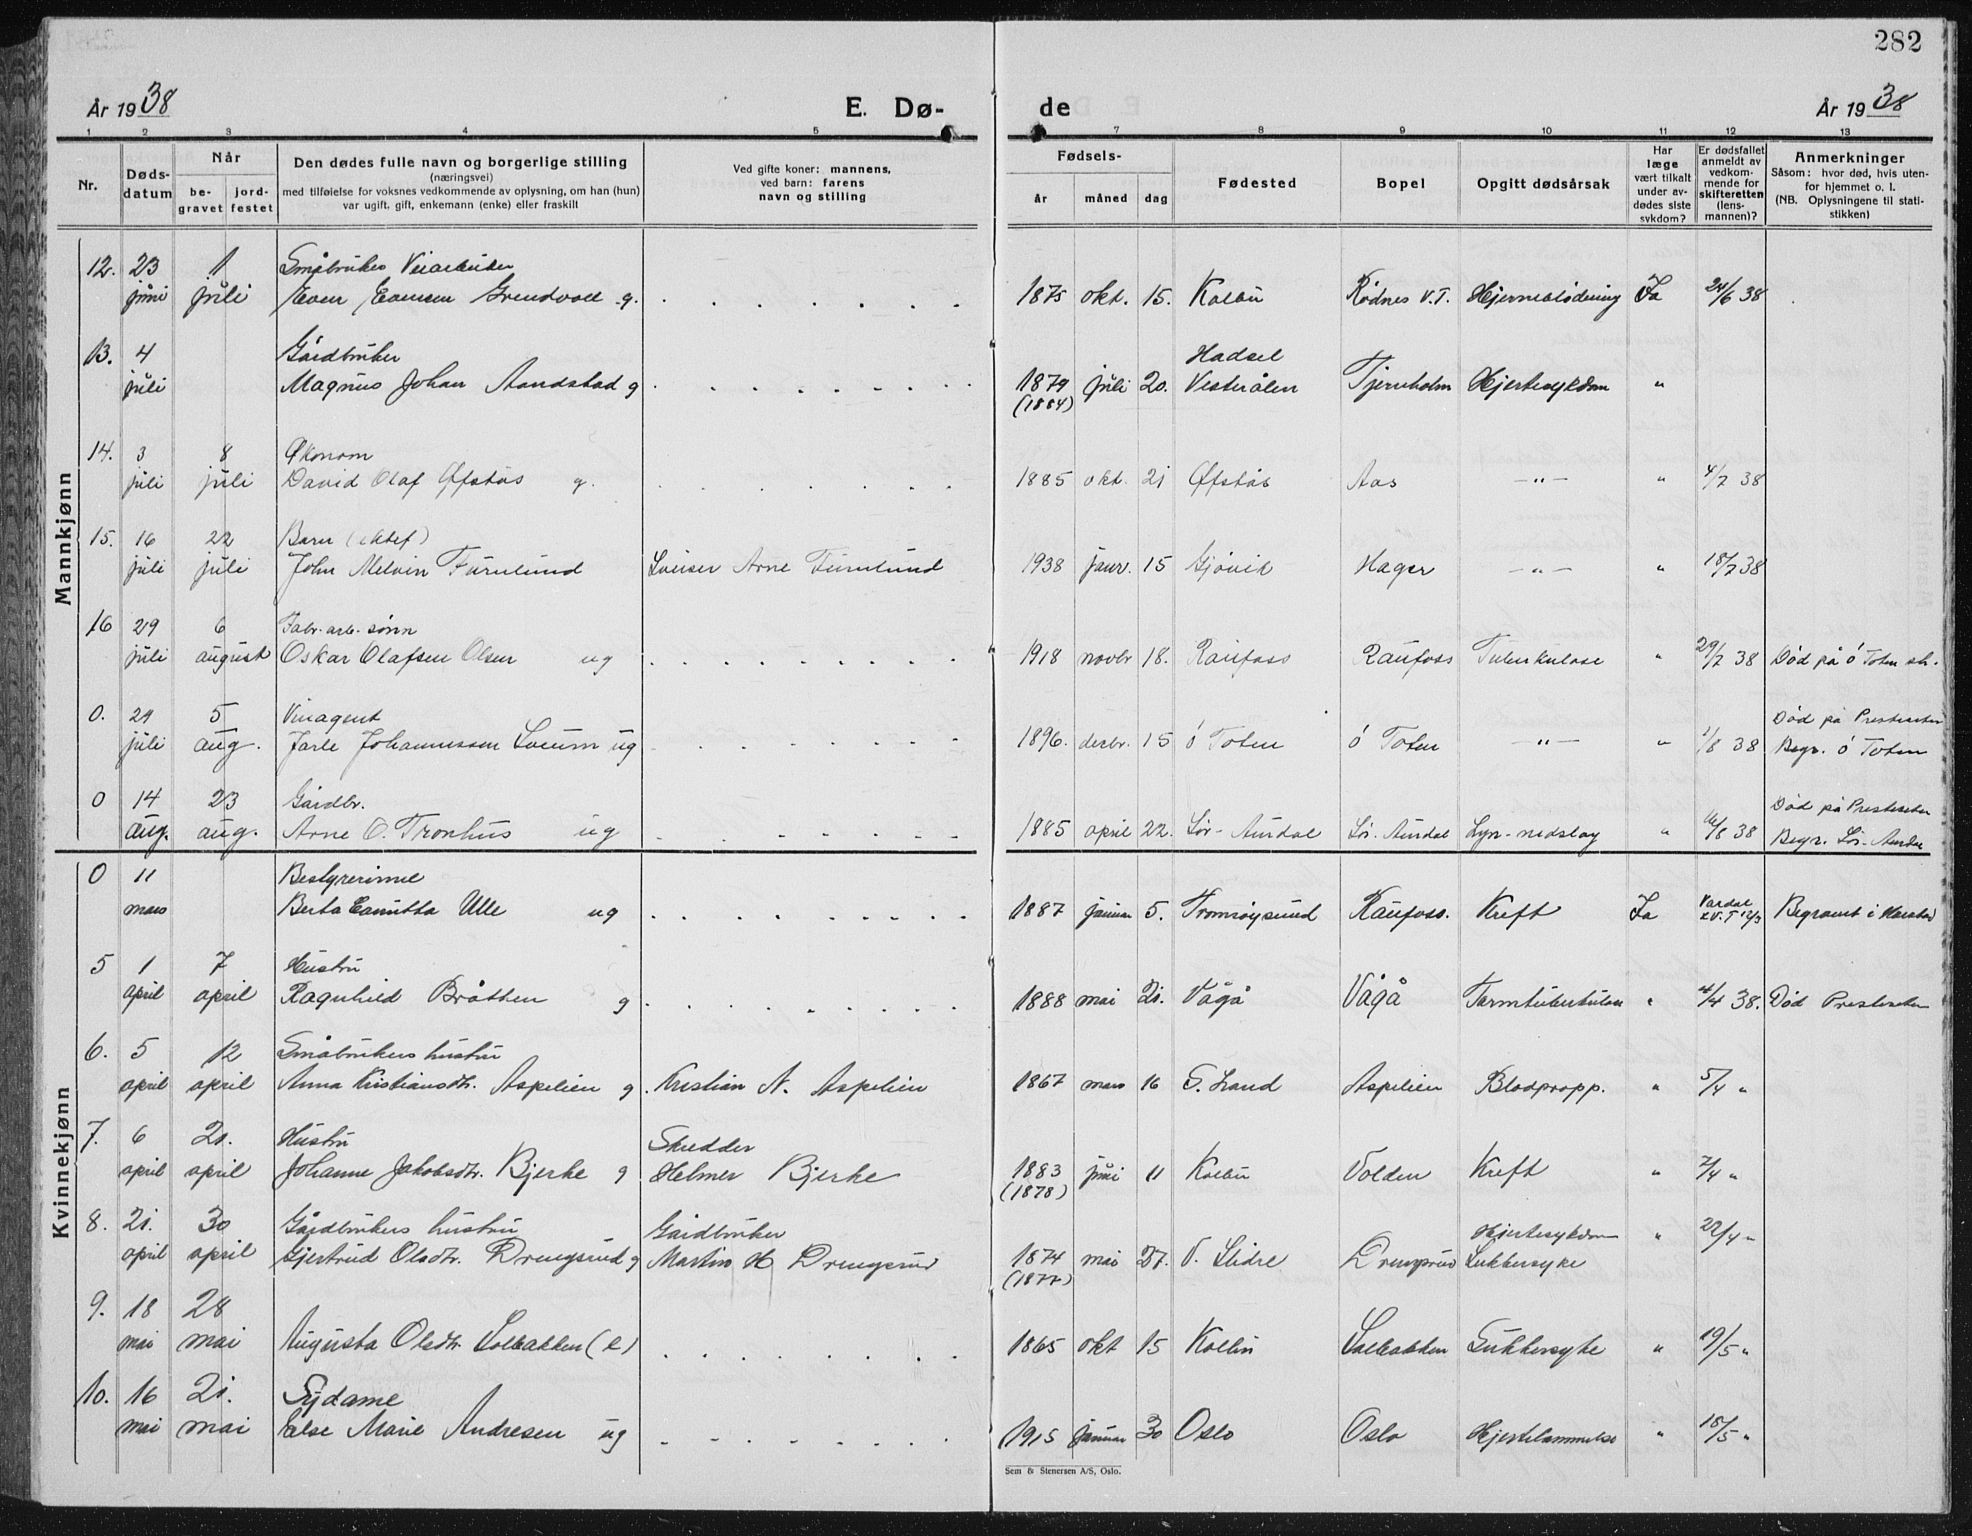 282
År 1938 E. Dø- de År 1938
1 2 3 4 5 7 8 9 10 11 12 13
Nr. Døds-datum Når begravet jordfestet
Den dødes fulle navn og borgerlige stilling
(næringsvei)
med tilføielse for voksnes vedkommende av oplysning, om han (hun)
var ugift, gift, enkemann (enke) eller fraskilt
Ved gifte koner: mannens,
ved barn: farens
navn og stilling
Fødsels-
år måned dag
Fødested
Bopel
Opgitt dødsårsak
Har læge vært tilkalt under avdødes siste sykdom?
Er dødsfallet anmeldt av vedkommende for skifteretten (lensmannen)?
Anmerkninger
Såsom: hvor død, hvis utenfor hjemmet o. l.
(NB. Oplysningene til statistikken)
Mannkjønn
12. 23 1 Småbruker Veiarbeider
juni juli Even Evensen Grendvoll g. 1875 okt. 15. Kolbu Rødnes V.T. Hjerneblødning Ja 24/6 38
13. 4 Gårdbruker Hadsel
juli Magnus Johan Sandstad g 1879 juli 20. Vesterålen Tjernholm Hjertesykdom "
(1884)
14. 3 8 Økonom
juli juli David Olaf Øfstås g. 1885 okt. 21 Øfstås Aas -"- " 4/7 38
15. 16 22 Barn (ektef)
juli juli John Melvin Furulund Sveiser Arne Furulund 1938 janr. 15 Gjøvik Hager -"- " 18/7 38
16 29 6 Fabr. arb. sønn
juli august Oskar Olafsen Olsen ug 1918 novbr 18. Raufoss Raufoss Tuberkulose " 29/7 38 Død på Ø Toten sh.
0. 24 5 Vinagent Død på Presteseter
juli aug. Jarle Johannessen Sveum ug 1896. desbr. 15 Ø Toten Ø Toten -"- " 1/8 38 Begr. Ø Toten
0 14 23 Gårdbr. Død på Presteseter
aug. aug. Arne O. Tronhus ug 1885 april 22. Sør-Aurdal Sør-Aurdal Lyn-nedslag " 16/8 38 Begr. Sør-Aurdal
Kvinnekjønn
0 11 Bestyrerinne Vardal
mars Berta Ulle ug 1887 januar 5. Tromsøysund Raufoss. Kreft Ja V.T 12/3 Begravet i Harstad
5 1 7 Hustru
april april Ragnhild Bråtten g 1888 mai 21. Vågå Vågå Tarmtuberkulose " 4/4 38. Død Presteseter
6. 5 12 Småbrukers hustru
april april Anna Kristiansdtr. Aspelien g. Kristian N. Aspelien 1867 mars 16 S. Land Aspelien Blodpropp. " 5/4 "
7. 6 21. Hustru Skredder
april april Johanne Jakobsdtr. Bjerke g Helmer Bjerke 1883 juni 11 Kolbu Volden Kreft " 7/4 "
(1878)
8. 21. 30 Gårdbrukers hustru Gårdbruker Hjertesykdom " 22/4 "
april april Gjertrud Olsdtr. Drengsrud g Martin H Drengsrud 1874 mai 27. V. Slidre Drengsrud Sukkersyke
(1877)
9. 18 28
mai mai Augusta Olsdtr. Solbakken (e) 1865 okt 15 Kolbu Solbakken Sukkersyke " 19/5 "
10. 16 21. Sydame
mai mai Else Marie Andresen ug 1915 januar 30 Oslo Oslo Hjertelammelse " 18/5 "
Sem & Stenersen A/S, Oslo.